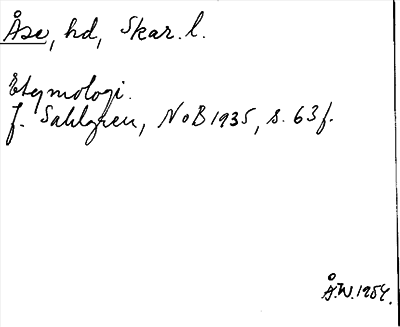 Åse, hd, Skar. l.
Etymologi.
J. Sahlgren, NoB 1935, s. 63 f.
Å.W. 1954.